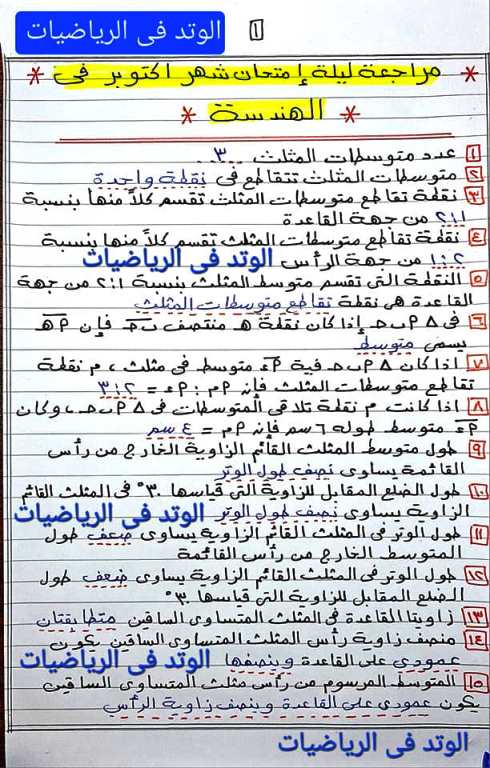 الوتد فى الرياضيات
١
* مراجعة ليلة إمتحان شهر اكتوبر فى *
* الهندسة *
١ عدد متوسطات المثلث ٣
٢ متوسطات المثلث تتقاطع فى نقطة واحدة
٣ نقطة تقاطع متوسطات المثلث تقسم كلاً منها بنسبة
٢:١ من جهة القاعدة
٤ نقطة تقاطع متوسطات المثلث تقسم كلاً منها بنسبة
١:٢ من جهة الرأس الوتد فى الرياضيات
٥ النقطة التى تقسم متوسط المثلث بنسبة ٢:١ من جهة
القاعدة هى نقطة تقاطع متوسطات المثلث
٦ فى △ ﺃ ب ﺣ إذا كان نقطة ه منتصف ب ﺣ فإن ﺃ ه
يسمى متوسط
٧ اذا كان △ ﺃ ب ﺣ فيه ﺃ ء متوسط فى مثلث ، م نقطة
تقاطع متوسطات المثلث فإن ﺃ م : ﺃ ء = ٣:٢
٨ اذا كانت م نقطة تلاقى المتوسطات فى △ ﺃ ب ﺣ ، وكان
ﺃ ء متوسط طوله ٦ سم فإن ﺃ م = ٤ سم
٩ طول متوسط المثلث القائم الزاوية الخارج من رأس
القائمة يساوى نصف طول الوتر
١٠ طول الضلع المقابل للزاوية التى قياسها ٣٠° فى المثلث القائم
الزاوية يساوى نصف طول الوتر الوتد فى الرياضيات
١١ طول الوتر فى المثلث القائم الزاوية يساوى ضعف طول
المتوسط الخارج من رأس القائمة
١٢ طول الوتر فى المثلث القائم الزاوية يساوى ضعف طول
الضلع المقابل للزاوية التى قياسها ٣٠°
١٣ زاويتا القاعدة فى المثلث المتساوى الساقين متطابقتان
١٤ منصف زاوية رأس المثلث المتساوى الساقين يكون
عمودى على القاعدة وينصفها الوتد فى الرياضيات
١٥ المتوسط المرسوم من رأس مثلث المتساوى الساقين
يكون عمودى على القاعدة وينصف زاوية الرأس
الوتد فى الرياضيات